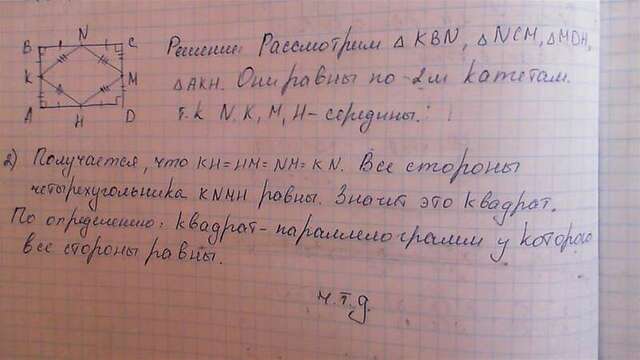 B N C
K M
A H D
Решение: Рассмотрим △ KBN, △ NCM, △ MDH,
△ AKH. Они равны по 2м катетам.
т.к N, K, M, H - середины.
2) Получается, что KH = HM = NM = KN. Все стороны
четырехугольника KNMH равны. Значит это квадрат.
По определению: квадрат - параллелограмм у которого
все стороны равны.
ч.т.д.